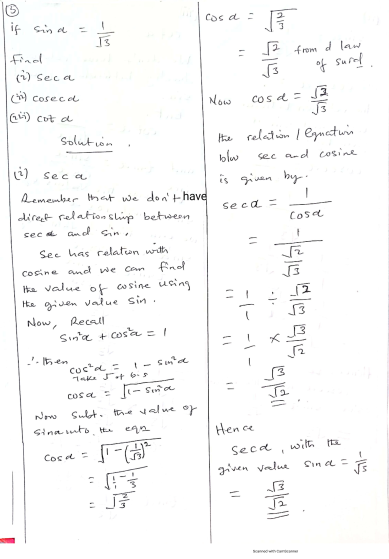 ③
if sin α = 1/√3
Find
(i) sec α
(ii) cosec α
(iii) cot α
Solution.
(i) sec α
Remember that we don't have
direct relationship between
sec α and sin.
Sec has relation with
cosine and we can find
the value of cosine using
the given value sin.
Now, Recall
sin²α + cos²α = 1
∴ then
cos²α = 1 - sin²α
Take √ of b.s
cos α = √(1 - sin²α)
Now Subt. the value of
sin α into the eqn
cos α = √(1 - (1/√3)²)
= √(1/1 - 1/3)
= √(2/3)
cos α = √(2/3)
= √2/√3 from d law
of surd.
Now cos α = √2/√3
the relation / Equation
b/w sec and cosine
is given by.
sec α = 1/cos α
= 1/(√2/√3)
= 1/1 ÷ √2/√3
= 1/1 × √3/√2
= √3/√2.
Hence
sec α, with the
given value sin α = 1/√3
= √3/√2.
Scanned with CamScanner